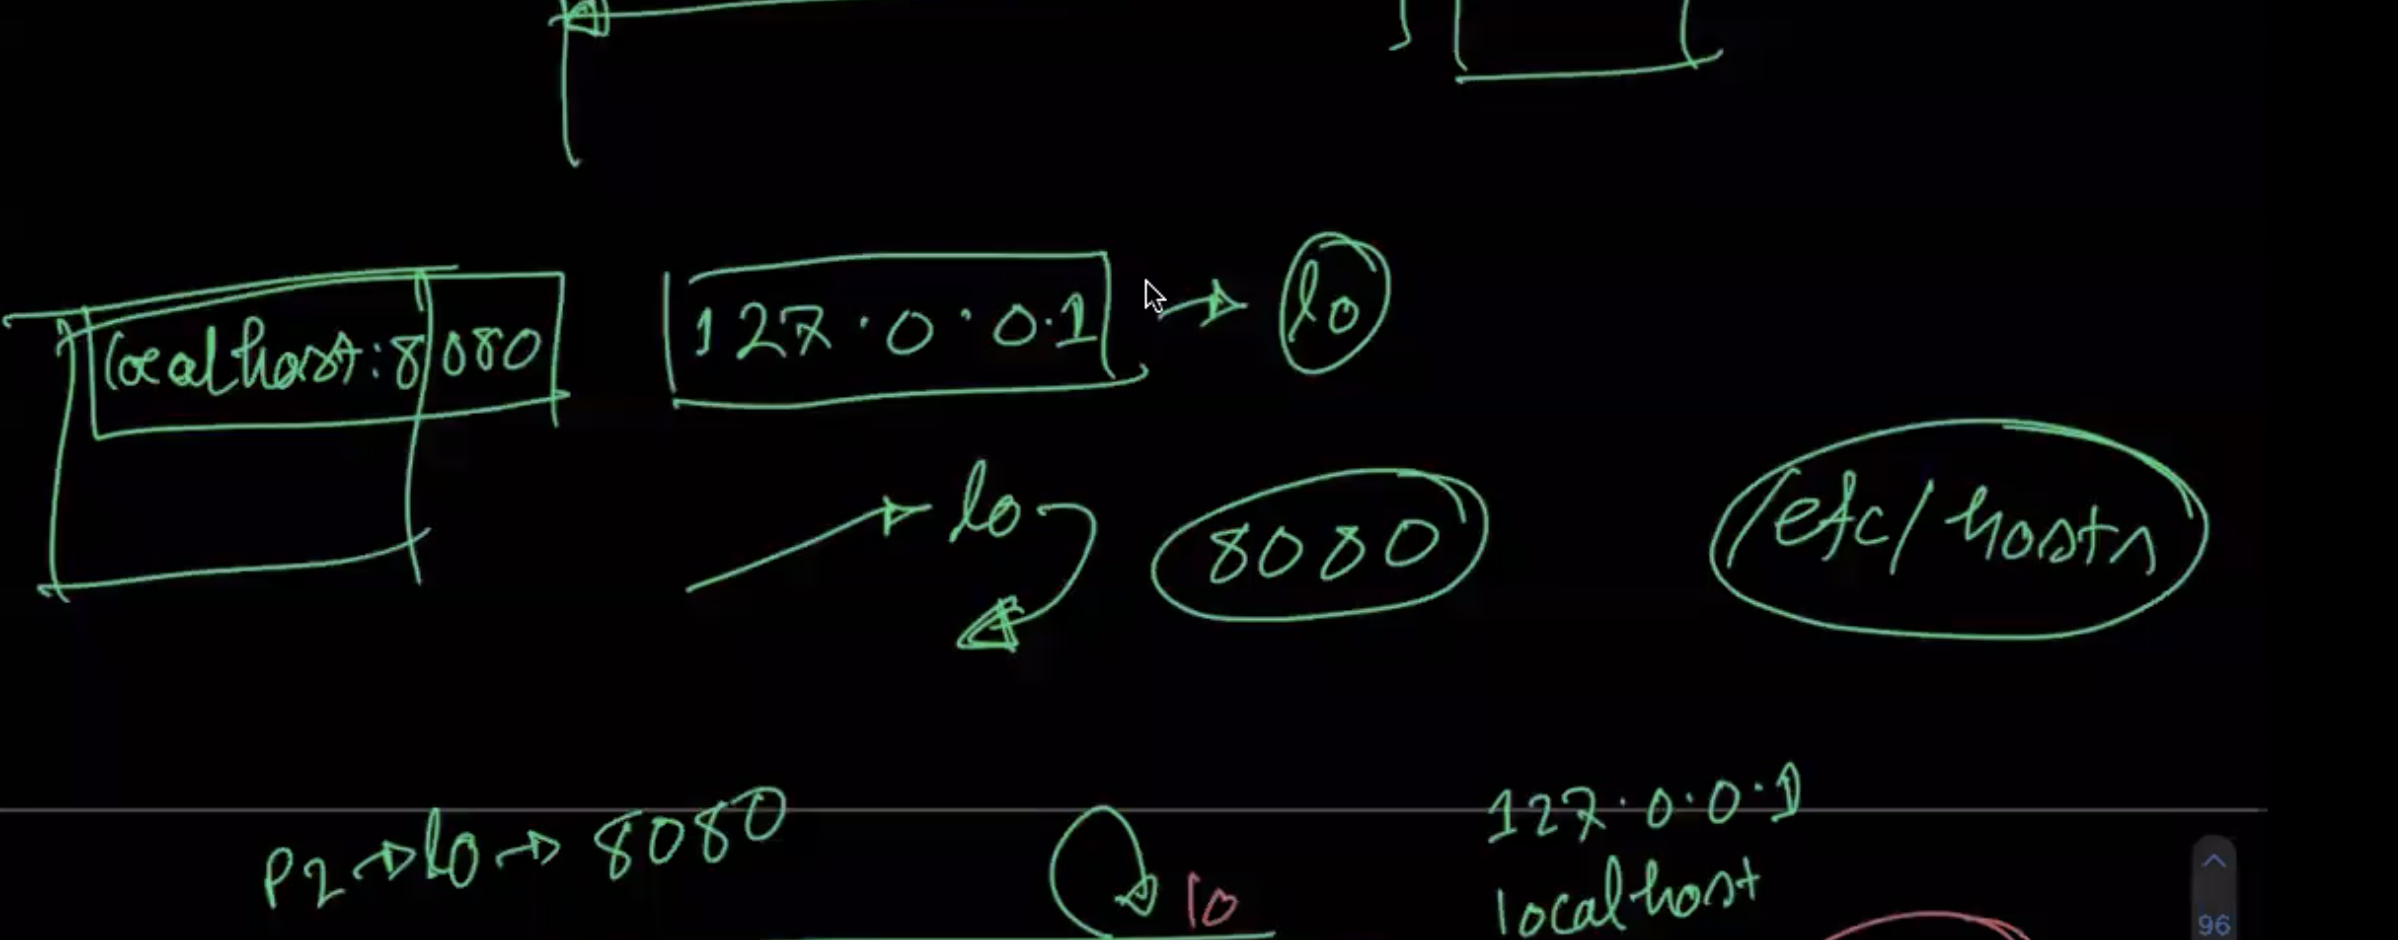 localhost:8080 127.0.0.1 → lo
→ lo 8080 /etc/hosts
P2 → lo → 8080 127.0.0.1
lo localhost
96